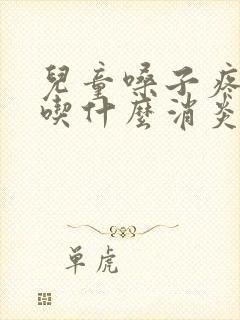 兒童嗓子疼
喫什麼消炎
單虎